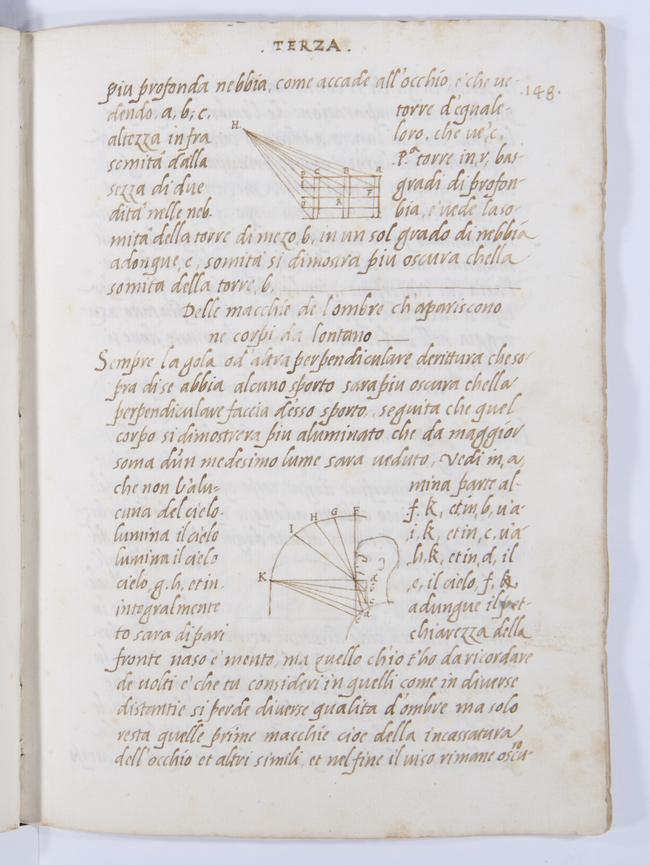 . TERZA .
148.
piu profonda nebbia, come accade all'occhio, e' che ve-
dendo. a, b, c. torre d'equale-
altezza infra loro. che ve', c,
somità dalla P.a torre in, r, bas-
sezza di due gradi di profon-
dità nelle neb. bia, e' vede la so-
mità della torre di mezo, b, in un sol grado di nebbia
adonque, c, somità si dimostra piu oscura chella
somità della torre, b.
H
C B A
R F
Delle macchie de l'ombre ch'apariscono
ne corpi da lontano
Sempre la gola od altra perpendiculare deritura che so-
pra di se abbia alcuno sporto sara piu oscura chella
perpendiculare faccia d'esso sporto, seguita che quel
corpo si dimostrera piu aluminato che da maggior
soma d'un medesimo lume sara veduto, Vedi in, a,
che non l'alu= mina parte al-
cuna del cielo. f. k, et in, b, u'a
lumina il cielo i, k, et in, c, u'a
lumina il cielo .h, k, et in, d, il
cielo, g. h, et in. e, il cielo, f, k,
integralmente adunque il pet-
to sara di pari chiarezza della
K I H G F
fronte naso e' mento, ma quello ch'io t'ho da ricordare
de uolti e' che tu consideri in quelli come in diverse
distantie si perde diverse qualita d'ombre ma solo
resta quelle prime macchie cioe della incassatura
dell'occhio et altri simili, et nel fine il uiso rimane oscu-